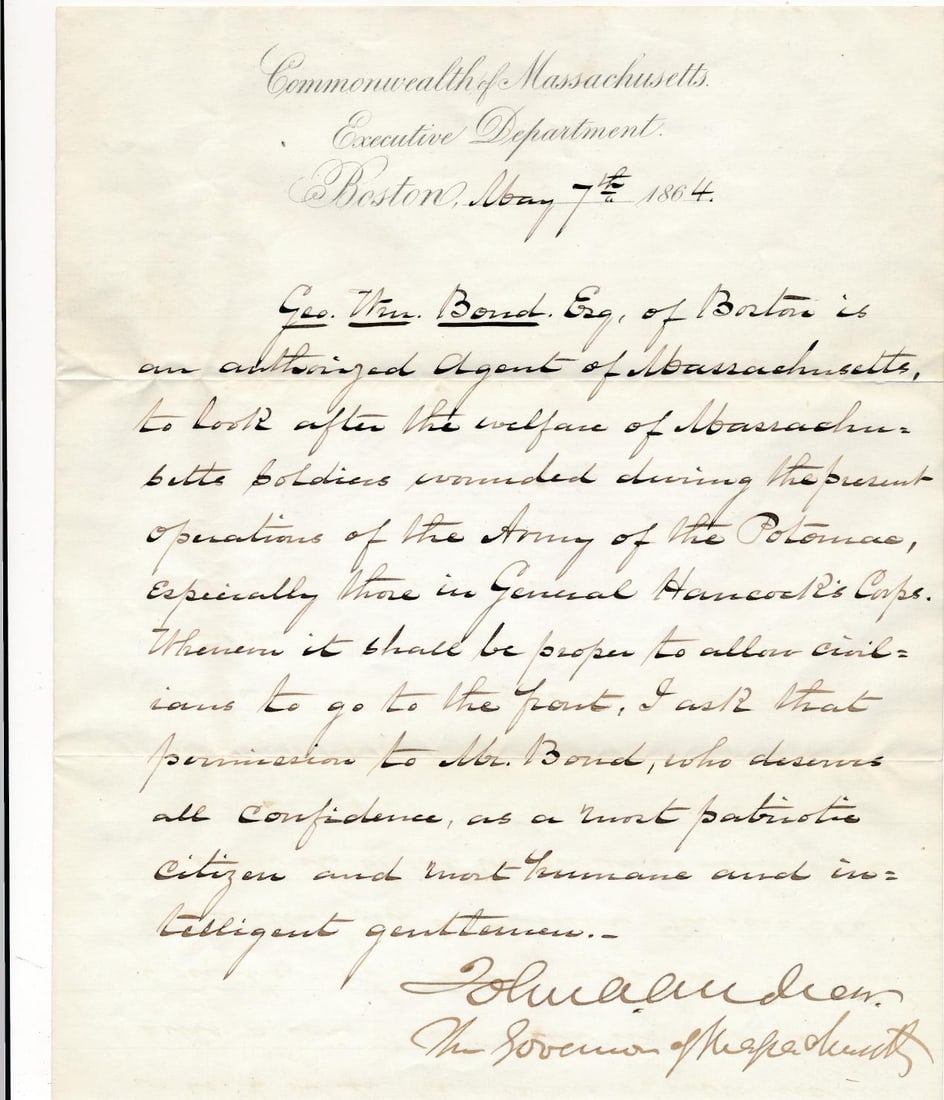 Commonwealth of Massachusetts.
Executive Department.
Boston, May 7th 1864.
Geo. Wm. Bond. Esq, of Boston is
an authorized Agent of Massachusetts,
to look after the welfare of Massachu=
setts soldiers wounded during the present
operations of the Army of the Potomac,
especially those in General Hancock's Corps.
Whenever it shall be proper to allow civil=
ians to go to the front, I ask that
permission to Mr. Bond, who deserves
all confidence, as a most patriotic
citizen and most humane and in=
telligent gentleman.-
John A. Andrew.
The Governor of Massachusetts